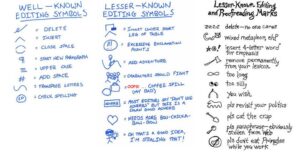 WELL-KNOWN
EDITING SYMBOLS
DELETE
INSERT
CLOSE SPACE
START NEW PARAGRAPH
UPPER CASE
ADD SPACE
TRANSPOSE LETTERS
CHECK SPELLING
LESSER-KNOWN
EDITING SYMBOLS
INSERT CHORD HERE
LEG OF TABLE
EXCESSIVE EXCLAMATION
POINTS
ADD ADVENTURE
CHARACTERS SHOULD FIGHT
OOPS! COFFEE SPILL
(MY BAD)
NEEDS MORE BOW-CHICKA-
BOW-BOW
OH THAT'S A GOOD IDEA,
I'M STEALING THAT!
Lesser-Known Editing
and Proofreading Marks
delete—no one cares
mixed metaphor, elf
insert 4-letter word
for emphasis
remove permanently
from your lexicon
too long
too silly
you wish
pls revisit your politics
pls cut the crap
pls paraphrase—obviously
stolen from Web
pls don't eat Pringles
while you work